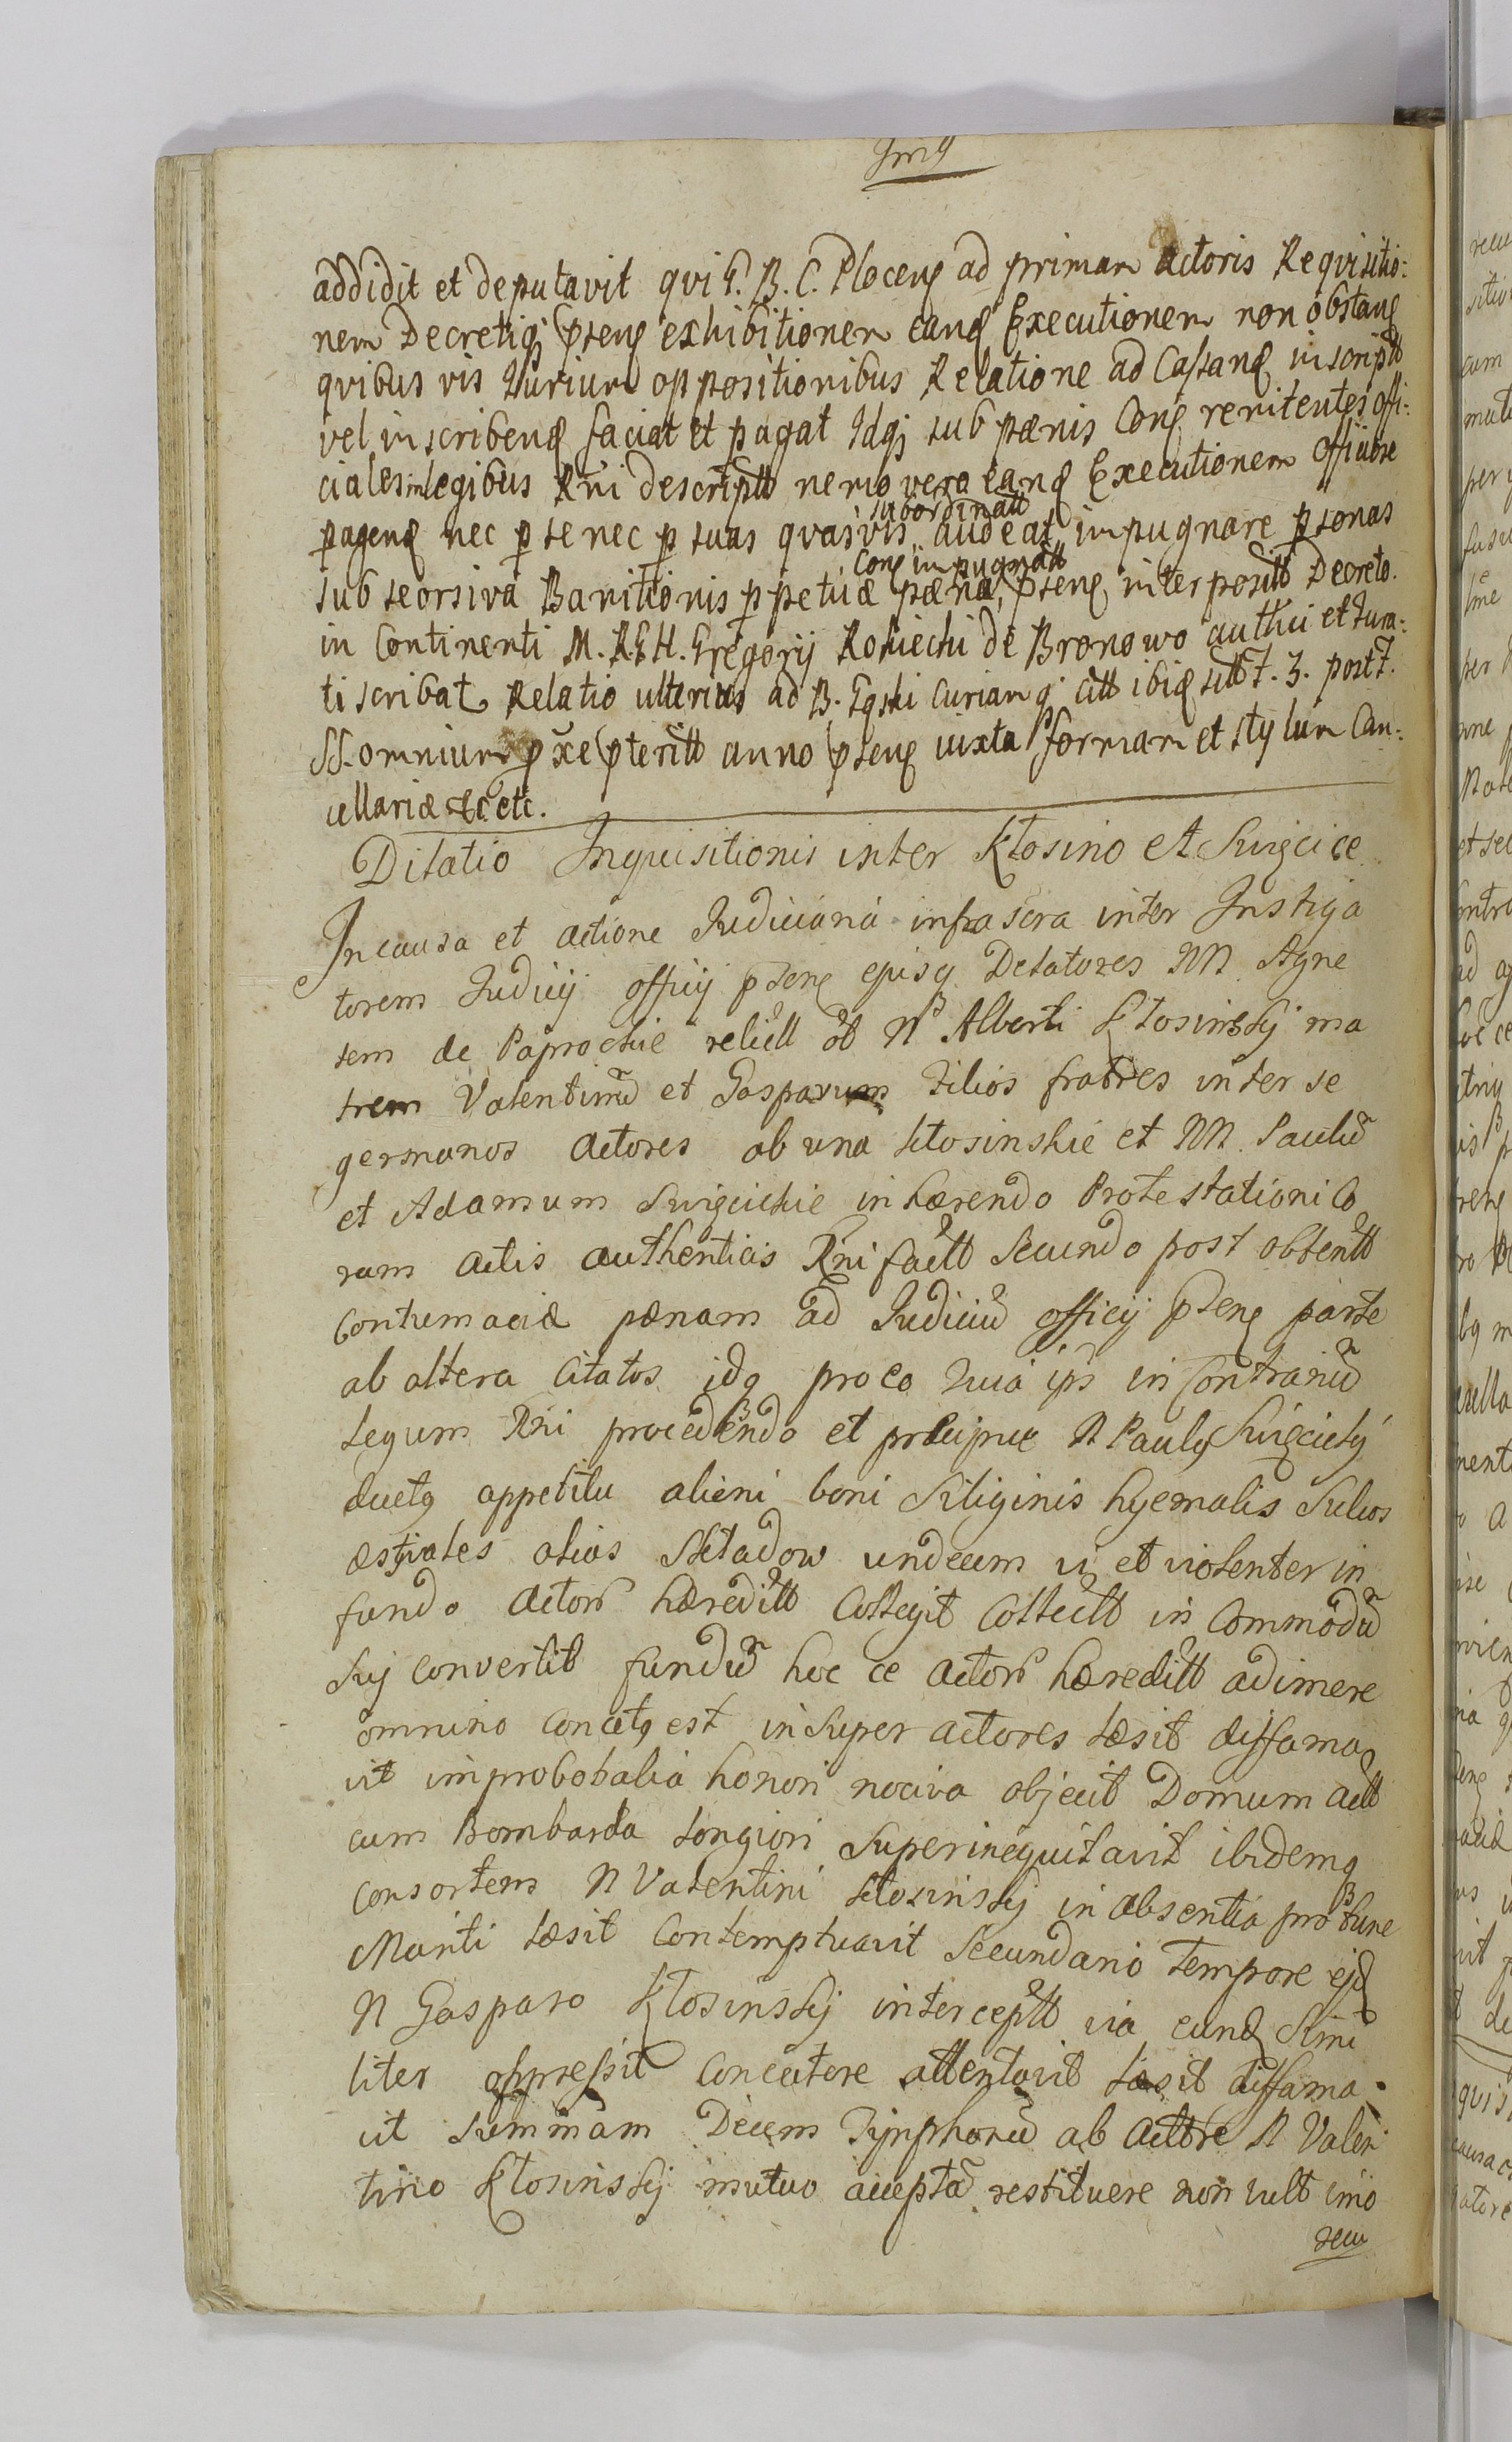 addidit et deputavit qui G. B. C. Ploceñ ad primam Actoris Requisitio:
nem Decretiq; pñteñ exhibitionem eand Executionem non obstanñ
quibus vis Iurium oppositionibus Relatione ad Cassand inscriptt
vel inscribend faciat et pagat Idq; sub pænis Conñ renitentes offi:
ciales in legibus Rni descriptt nemo vero eand Executionem Officiose
pagend nec p se nec p suas quasvis subordinatt audeat impugnare psonas
sub seorsiva Banitionis ppetuæ pæna, Conñ impugnatt pñteñ interpositt Decreto.
in Continenti M. R. & H. Gregorij Rokiecki de Bronowo authci et Iura:
ti scribat Relatio ulterius ad B. Gski Curiam q citt ibid sctt F. 3. post F.
SS. omnium pxe pteritt anno pñteñ iuxta formam et stylum Can:
cellariæ etc etc.
Dilatio Inquisitionis inter Kłosino et Swięcice
In causa et actione Iudiciaria infrascra inter Instiga
torem Iudicij officij pñteñ ejusq Delatores NN Agne
tem de Paprockie relictt olb Nb Alberti Kłosinskij ma
trem Valentinũ et Gasparum Filios fratres inter se
germanos Actores ab una Kłosinskie et NN. Paulũ
et Adamum Swięcickie inhærendo Protestationi Co
ram Actis authenticis Rni factt Secundo post obtentt
Contumaciæ pænam ad Iudiciũ officij pñteñ parte
ab altera Citatos idq pro eo Quia ipsi in Contrariũ
Legum Rni procedendo et præcipue N Paulq Swięcickij
ductq appetitu alieni boni Siliginis hyemalis Sulcos
æstivales alias Składow undecem vi et violenter in
fundo Actori hæreditt Collegit Collectt in Commodũ
Sui convertit fundũ hoc ce Actori hæreditt adimere
omnino Conatq est insuper actores læsit diffama
vit improbabalia honori nociva objecit Domum Actt
cum Bombarda longiori Superinequitavit ibidemq
consortem N Valentini Kłosinskij in absentia pro tunc
Mariti læsit Contemptuavit Secundario tempore ejd
N Gasparo Kłosinskij interceptt via eund Simi
liter oppressit Concutere attentavit læsit diffama
vit Summam Decem Tynphonũ ab Actore N Valen
tino Kłosinskij mutuo acceptã restituere non vult imo
recu